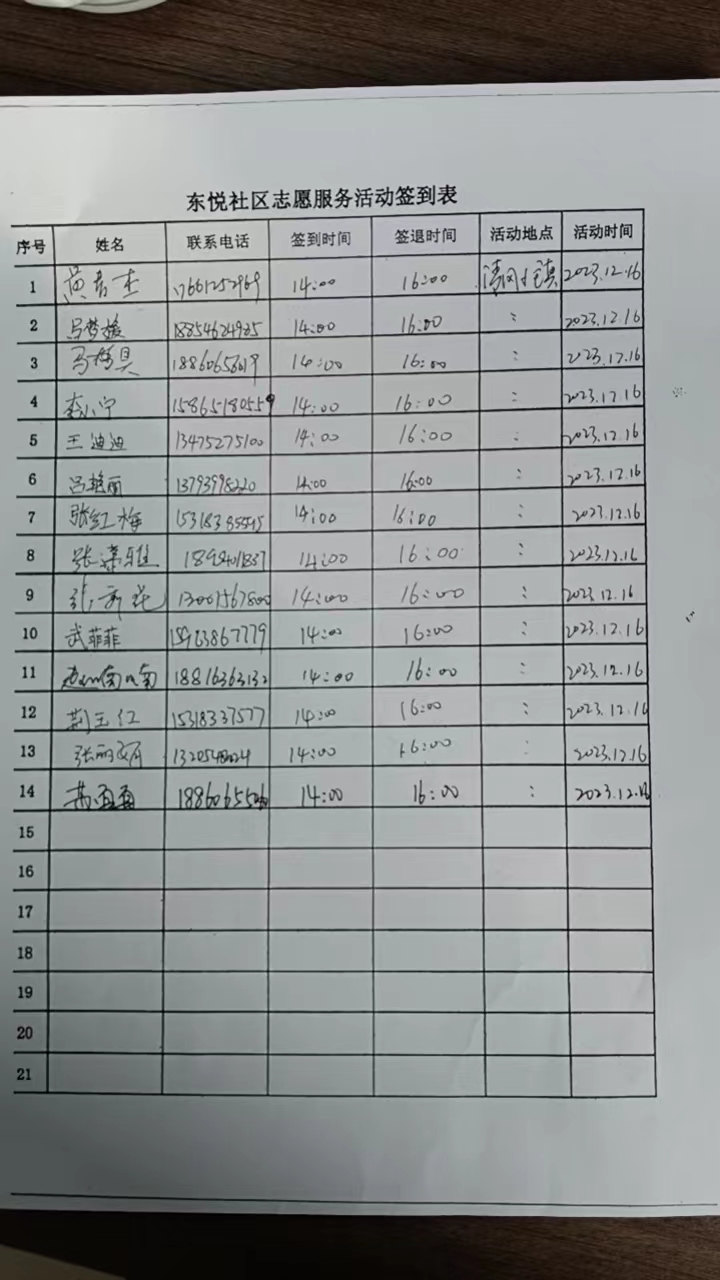 东悦社区志愿服务活动签到表
序号 姓名 联系电话 签到时间 签退时间 活动地点 活动时间
1 黄 杰 17661252969 14:00 16:00 清风小镇 2023.12.16
2 马梦媛 18854624925 14:00 16:00 : 2023.12.16
3 马 14:00 16:00 : 2023.12.16
4 李小宁 15865180559 14:00 16:00 : 2023.12.16
5 王迪迪 13475275100 14:00 16:00 : 2023.12.16
6 吕艳丽 13793998220 14:00 16:00 : 2023.12.16
7 张红梅 14:00 16:00 : 2023.12.16
8 张潇雅 14:00 16:00 : 2023.12.16
9 13001567800 14:00 16:00 : 2023.12.16
10 武菲菲 15963867779 14:00 16:00 : 2023.12.16
11 南南 18816363132 14:00 16:00 : 2023.12.16
12 荆玉红 15318337577 14:00 16:00 : 2023.12.16
13 张丽 14:00 16:00 : 2023.12.16
14 14:00 16:00 : 2023.12.16
15
16
17
18
19
20
21